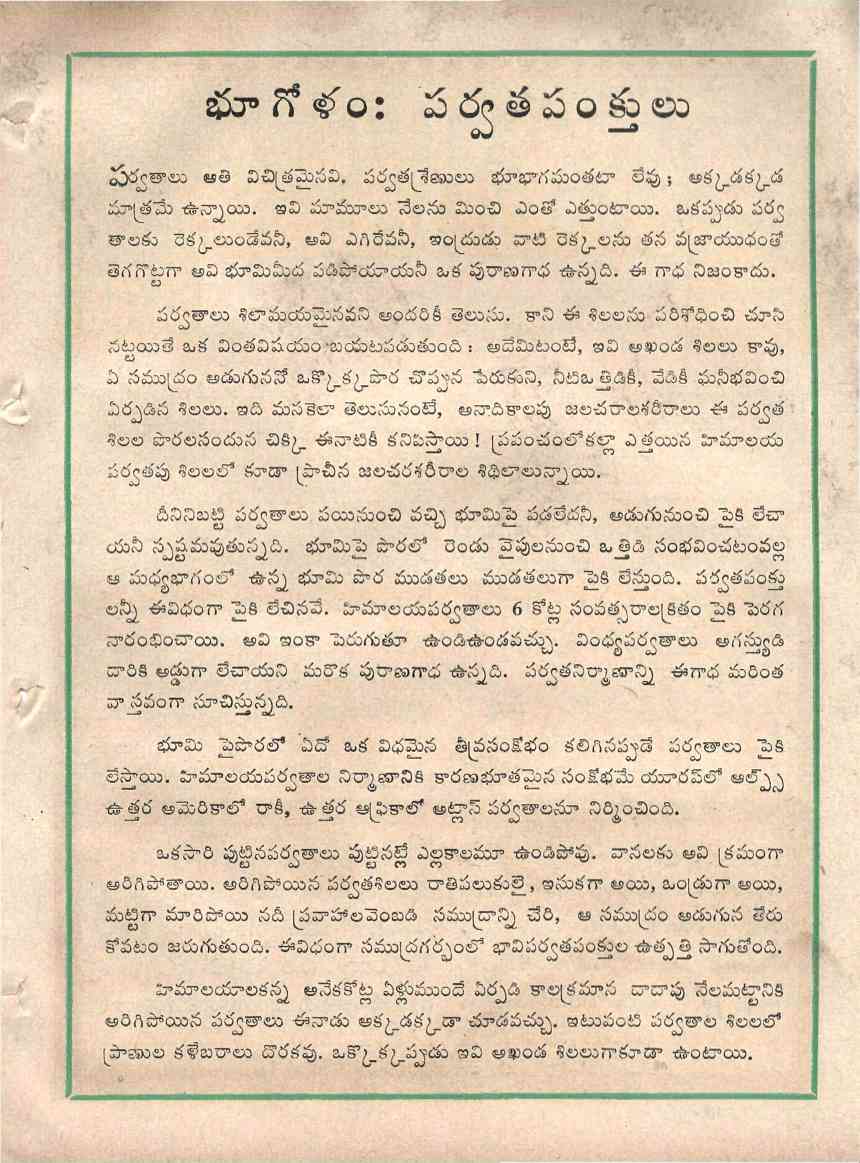 భూగోళం: పర్వతపంక్తులు
పర్వతాలు అతి విచిత్రమైనవి. పర్వతశ్రేణులు భూభాగమంతటా లేవు; అక్కడక్కడ
మాత్రమే ఉన్నాయి. ఇవి మామూలు నేలను మించి ఎంతో ఎత్తుంటాయి. ఒకప్పుడు పర్వ
తాలకు రెక్కలుండేవనీ, అవి ఎగిరేవనీ, ఇంద్రుడు వాటి రెక్కలను తన వజ్రాయుధంతో
తెగగొట్టగా అవి భూమిమీద పడిపోయాయనీ ఒక పురాణగాధ ఉన్నది. ఈ గాధ నిజంకాదు.
పర్వతాలు శిలామయమైనవని అందరికీ తెలుసు. కాని ఈ శిలలను పరిశోధించి చూసి
నట్టయితే ఒక వింతవిషయం బయటపడుతుంది: అదేమిటంటే, ఇవి అఖండ శిలలు కావు,
ఏ సముద్రం అడుగుననో ఒక్కొక్కపొర చొప్పున పేరుకుని, నీటిఒత్తిడికీ, వేడికీ ఘనీభవించి
ఏర్పడిన శిలలు. ఇది మనకెలా తెలుసునంటే, అనాదికాలపు జలచరాలశరీరాలు ఈ పర్వత
శిలల పొరలనందున చిక్కి ఈనాటికీ కనిపిస్తాయి! ప్రపంచంలోకల్లా ఎత్తయిన హిమాలయ
పర్వతపు శిలలలో కూడా ప్రాచీన జలచరశరీరాల శిథిలాలున్నాయి.
దీనినిబట్టి పర్వతాలు పయినుంచి వచ్చి భూమిపై పడలేదనీ, అడుగునుంచి పైకి లేచా
యనీ స్పష్టమవుతున్నది. భూమిపై పొరలో రెండు వైపులనుంచి ఒత్తిడి సంభవించటంవల్ల
ఆ మధ్యభాగంలో ఉన్న భూమి పొర ముడతలు ముడతలుగా పైకి లేస్తుంది. పర్వతపంక్తు
లన్నీ ఈవిధంగా పైకి లేచినవే. హిమాలయపర్వతాలు 6 కోట్ల సంవత్సరాలక్రితం పైకి పెరగ
నారంభించాయి. అవి ఇంకా పెరుగుతూ ఉండిఉండవచ్చు. వింధ్యపర్వతాలు అగస్త్యుడి
దారికి అడ్డుగా లేచాయని మరొక పురాణగాధ ఉన్నది. పర్వతనిర్మాణాన్ని ఈగాధ మరింత
వాస్తవంగా సూచిస్తున్నది.
భూమి పైపొరలో ఏదో ఒక విధమైన తీవ్రసంక్షోభం కలిగినప్పుడే పర్వతాలు పైకి
లేస్తాయి. హిమాలయపర్వతాల నిర్మాణానికి కారణభూతమైన సంక్షోభమే యూరప్‌లో ఆల్ప్స్
ఉత్తర అమెరికాలో రాకీ, ఉత్తర ఆఫ్రికాలో అట్లాస్ పర్వతాలనూ నిర్మించింది.
ఒకసారి పుట్టినపర్వతాలు పుట్టినట్లే ఎల్లకాలమూ ఉండిపోవు. వానలకు అవి క్రమంగా
అరిగిపోతాయి. అరిగిపోయిన పర్వతశిలలు రాతిపలుకులై, ఇసుకగా అయి, ఒండ్రుగా అయి,
మట్టిగా మారిపోయి నదీ ప్రవాహాలవెంబడి సముద్రాన్ని చేరి, ఆ సముద్రం అడుగున తేరు
కోవటం జరుగుతుంది. ఈవిధంగా సముద్రగర్భంలో భావిపర్వతపంక్తుల ఉత్పత్తి సాగుతోంది.
హిమాలయాలకన్న అనేకకోట్ల ఏళ్లుముందే ఏర్పడి కాలక్రమాన దాదాపు నేలమట్టానికి
అరిగిపోయిన పర్వతాలు ఈనాడు అక్కడక్కడా చూడవచ్చు. ఇటువంటి పర్వతాల శిలలలో
ప్రాణుల కళేబరాలు దొరకవు. ఒక్కొక్కప్పుడు ఇవి అఖండ శిలలుగాకూడా ఉంటాయి.